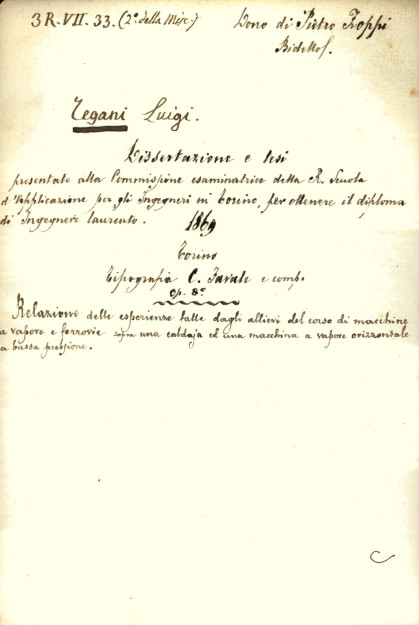 3R. VII. 33. (2ª della Misc.) Dono di Pietro Troppi
Bidello S.
Tegani Luigi.
Dissertazione e tesi
presentate alla Commissione esaminatrice della R. Scuola
d'Applicazione per gli Ingegneri in Torino, per ottenere il diploma
di Ingegnere laureato. 1869
Torino
Tipografia C. Favale e comp.
op. 8°
Relazione delle esperienze fatte dagli allievi del corso di macchine
a vapore e ferrovie sopra una caldaja ed una macchina a vapore orizzontale
a bassa pressione.
C